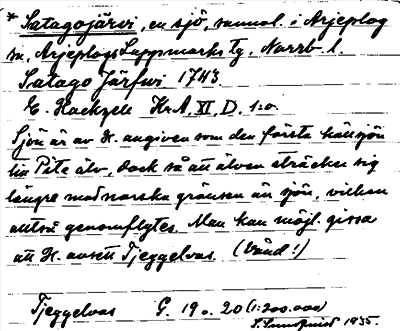 * Satagojärvi, en sjö, sannol. i Arjeplog
sn, Arjeplogs Lappmarks Tg, Norrb. l.
Satago Järfwi 1743
E. Hackzell K.A. XI, D, 1:0.
Sjön är av H. angiven som den första källsjön
till Pite älv, dock så att älven sträcker sig
längre mot norska gränsen än sjön, vilken
alltså genomflytes. Man kan möjl. gissa
att H. avsett Tjeggelvas. (Vänd!)
Tjeggelvas G. 19 o. 20 (1:200.000)
S. Sundquist 1935.